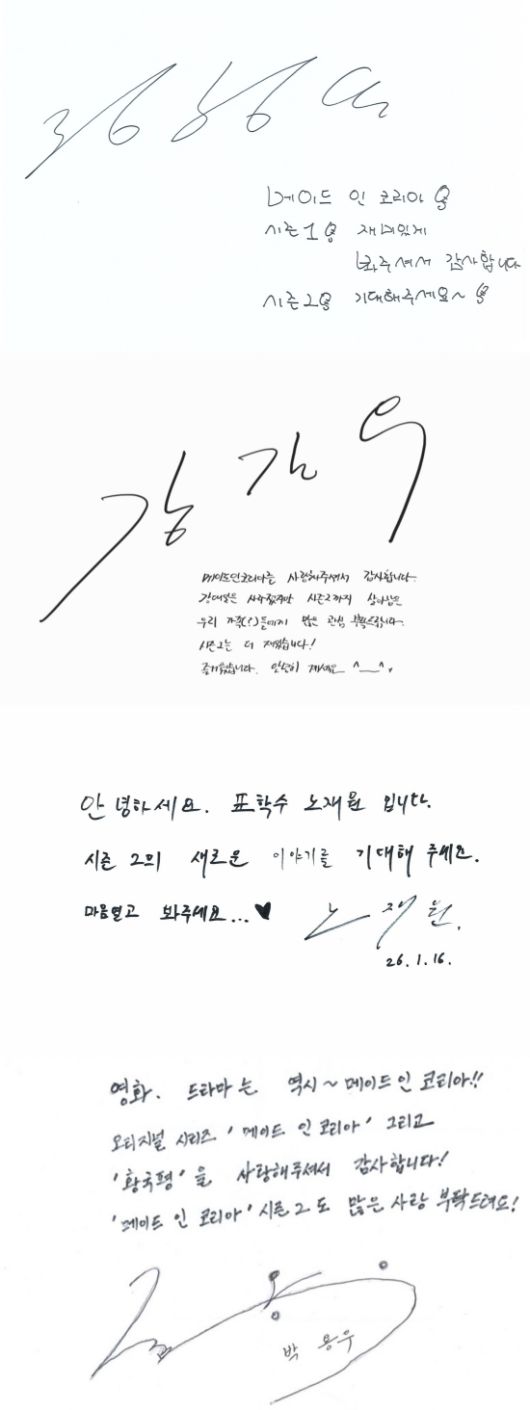 메이드 인 코리아
시즌1 재미있게
봐주셔서 감사합니다
시즌2 기대해주세요~
강길우
메이드인코리아를 사랑해주셔서 감사합니다.
강대일은 사라졌지만 시즌2까지 살아남은
우리 가족(?)들에게 많은 관심 부탁드립니다.
시즌2는 더 재밌습니다!
즐거웠습니다. 안녕히 계세요 ^__^.
안녕하세요. 표학수 노재원 입니다.
시즌 2의 새로운 이야기를 기대해 주세요.
마음열고 봐주세요...♥
노재원.
26.1.16.
영화. 드라마는 역시~메이드인 코리아!!
오리지널 시리즈 '메이드 인 코리아' 그리고
'황국평'을 사랑해주셔서 감사합니다!
'메이드 인 코리아' 시즌2도 많은 사랑 부탁드려요!
박용우